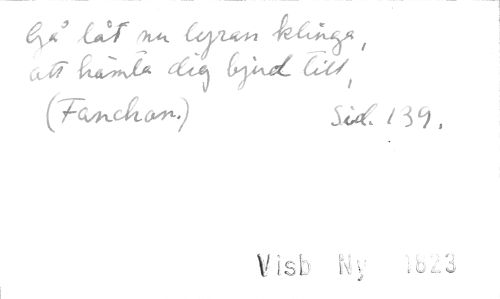 Gå låt nu lyran klinga,
att hämta dig bjud till,
(Fanchon.) Sid. 139.
Visb Ny 1823